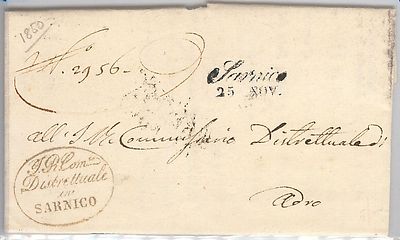 1850
N.° 2956 -
Sarnico
25 NOV.
all' I. R. Commissario Distrettuale di
Adro
I. R. Com.
Distrettuale
in
SARNICO